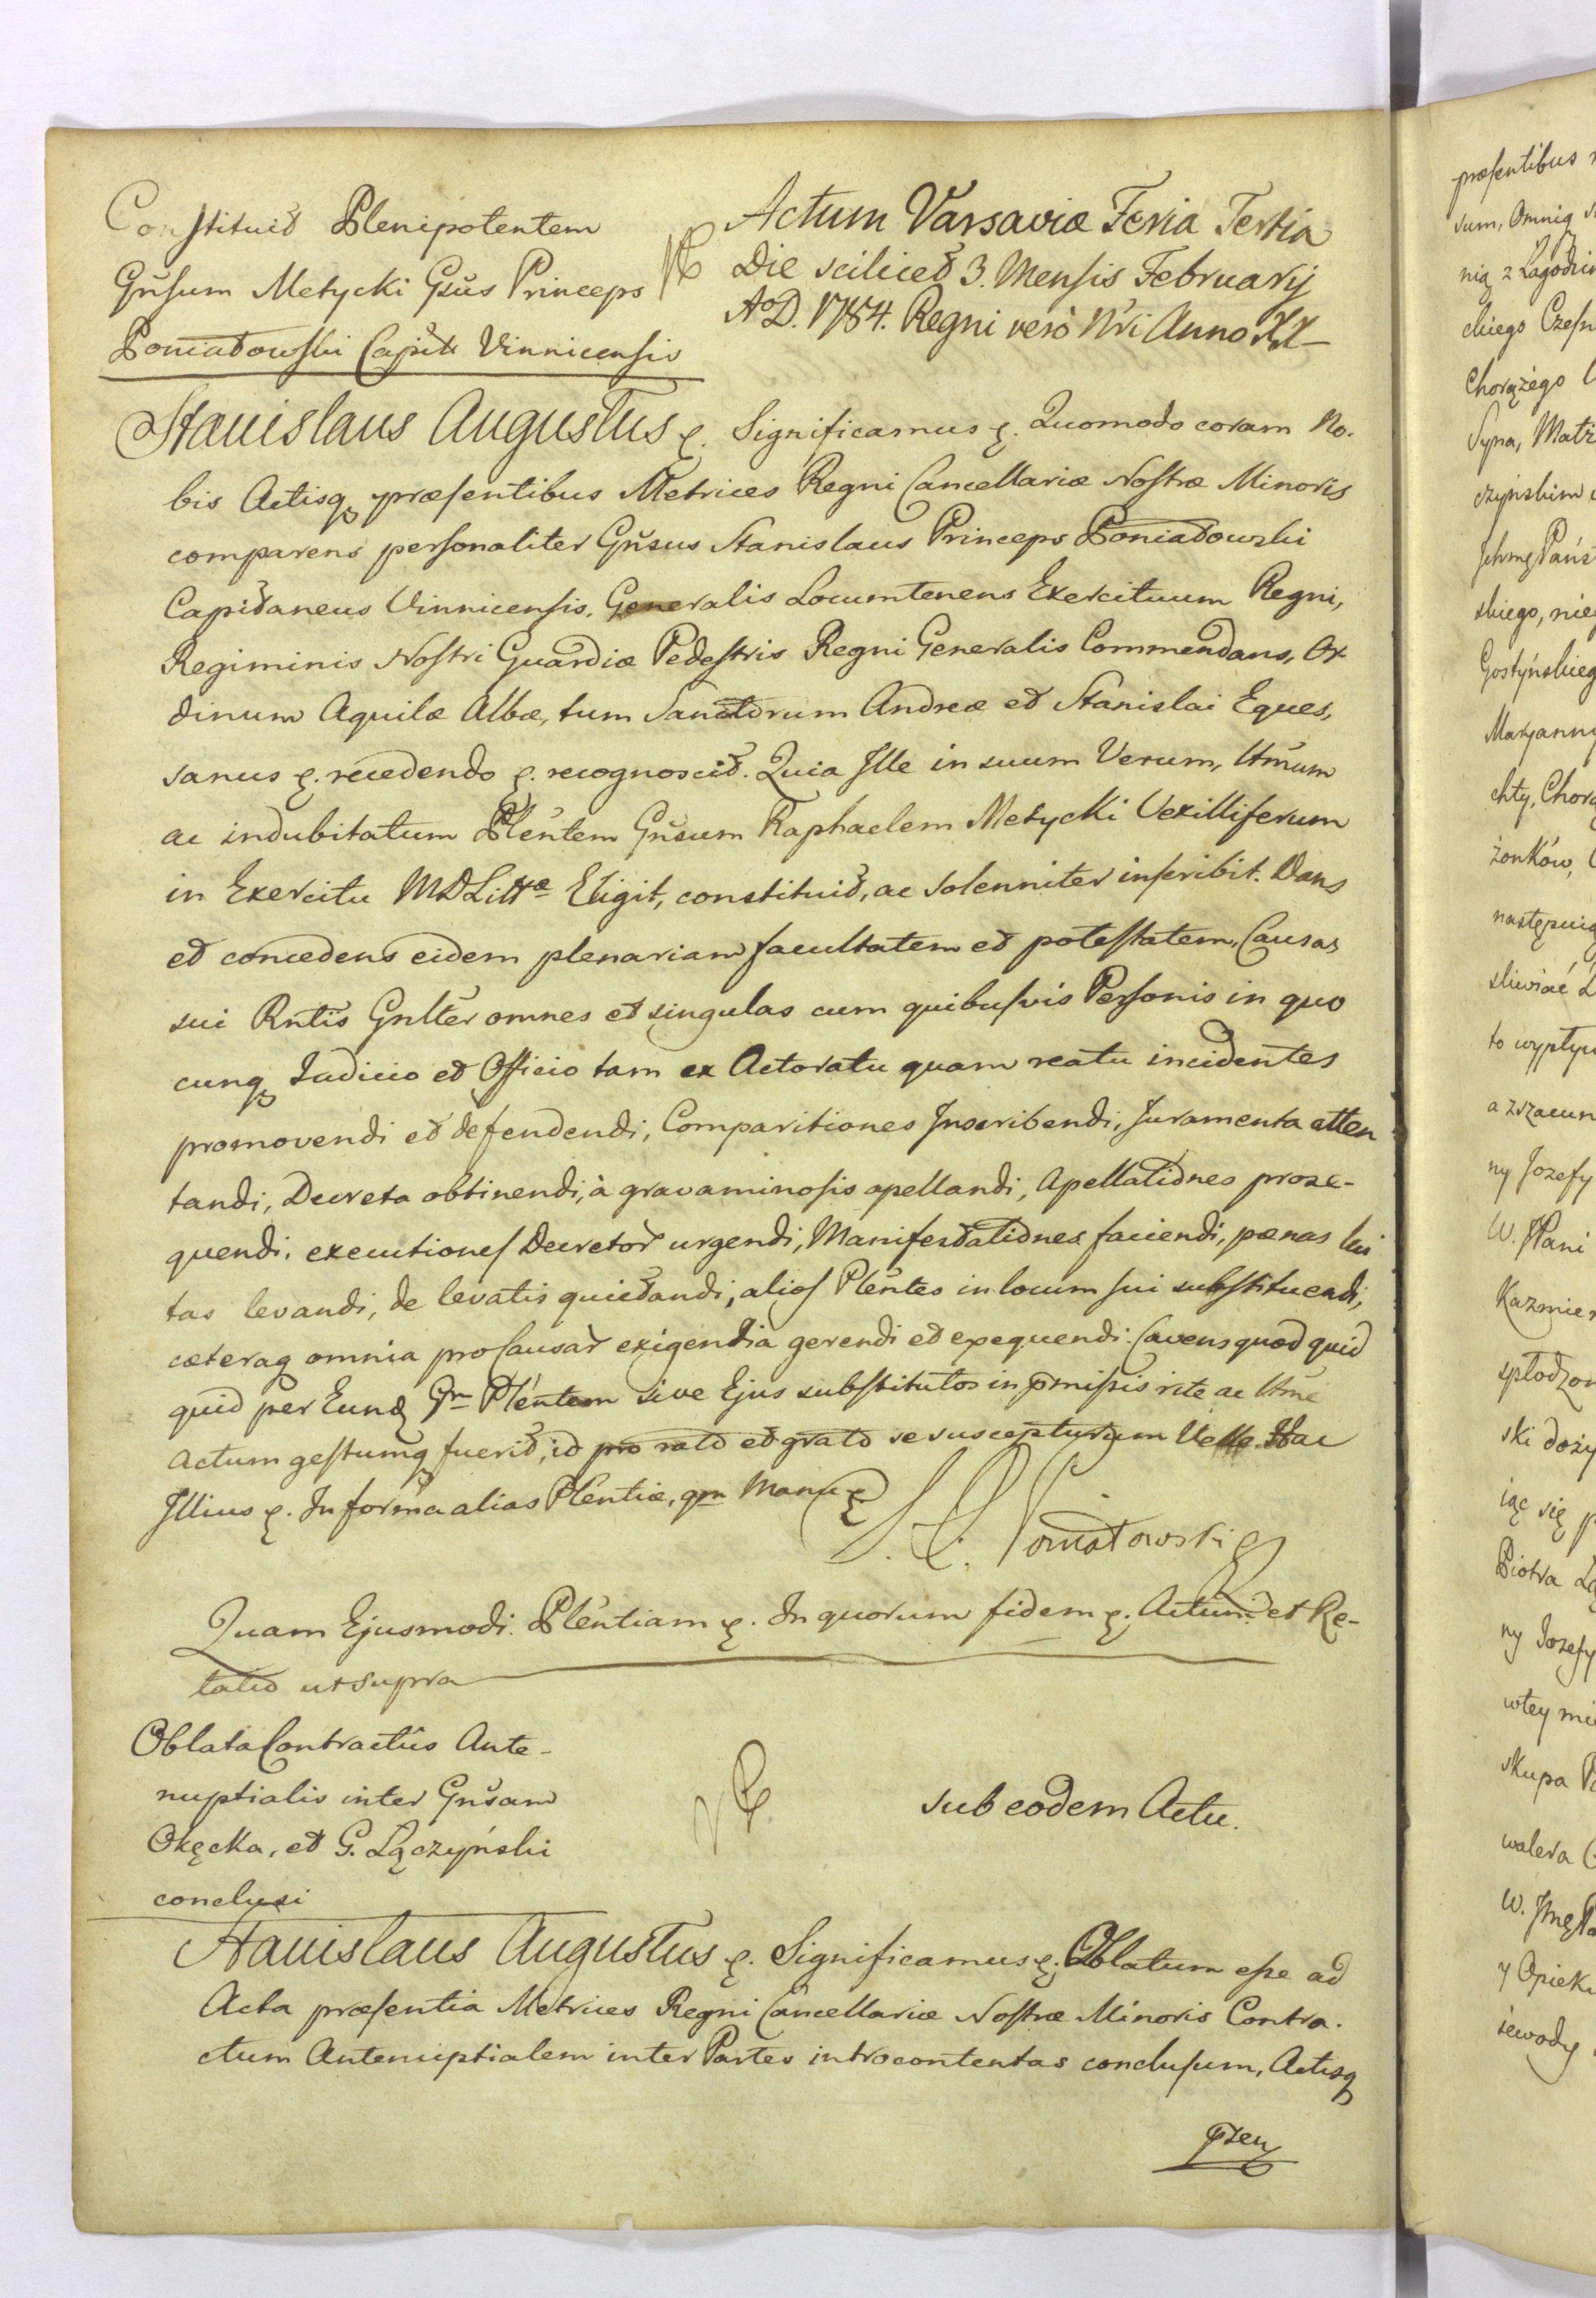 Constituit Plenipotentem
Gnsum Metycki Gsus Princeps
Poniatowski Capit. Vinnicensis
Actum Varsaviæ Feria Tertia
Die scilicet 3. Mensis Februarij
AoD. 1784. Regni verò Nri Anno XX
Stanislaus Augustus &. Significamus &. Quomodo coram No-
bis Actisq præsentibus Metrices Regni Cancellariæ Nostræ Minoris
comparens personaliter Gnsus Stanislaus Princeps Poniatowski
Capitaneus Vinnicensis, Generalis Locumtenens Exercituum Regni,
Regiminis Nostri Guardiæ Pedestris Regni Generalis Commendans, Or-
dinum Aquilæ Albæ, tum Sanctorum Andreæ et Stanislai Eques,
sanus &. recedendo &. recognoscit. Quia Ille in suum Verum, Ltmum
ac indubitatum Plentem Gnsum Raphaelem Metycki Vexilliferum
in Exercitu MDLittæ Eligit, constituit, ac solenniter inscribit. Dans
et concedens eidem plenariam facultatem et potestatem, Causas
sui Rntis Gnlter omnes et singulas cum quibusvis Personis in quo
cunq Iudicio et Officio tam ex Actoratu quam reatu incidentes
promovendi et defendendi, Comparitiones Inscribendi, Juramenta atten
tandi, Decreta obtinendi, à gravaminosis apellandi, Apellationes prose-
quendi, executiones Decretor urgendi, Manifestationes faciendi, pænas lui
tas levandi, de levatis quietandi, alios Plentes in locum sui substituendi,
cæteraq omnia pro Causar exigentia gerendi et exequendi. Cavens quod quid
quid per Eund Gm Plentem sive Ejus substitutos in pmissis rite ac Ltme
Actum gestumq fuerit, id pro rato et grato se suscepturum Velle. Hac
Illius &. In forma alias Plentiæ, qm Manu &
S. P. Poniatowski
Quam Ejusmodi Plentiam &. In quorum fidem &. Actum et Re-
latio ut supra
Oblata Contractûs Ante-
nuptialis inter Gnsam
Okęcka, et G. Lączyński
conclusi
sub eodem Actu.
Stanislaus Augustus &. Significamus &. Oblatum esse ad
Acta præsentia Metrices Regni Cancellariæ Nostræ Minoris Contra-
ctum Antenuptialem inter Partes introcontentas conclusum, Actisq
præsentibus
sum, Omnia
nią z Lagodzin
ckiego Czesn
Chorążego
Syna, Matż
czyńskim
Pańs
skiego, nie
Gostyńskieg
Maryanny
chty, Chorą
żonków,
następuią
sliwiać
to wypły
a zrzacun
ny Jozefy
W. JPani
Kazmier
spłodzon
ski doży
iąc się p
Piotra
ny Jozefy
wtey mi
skupa
walera
W.
y Opieku
iewody